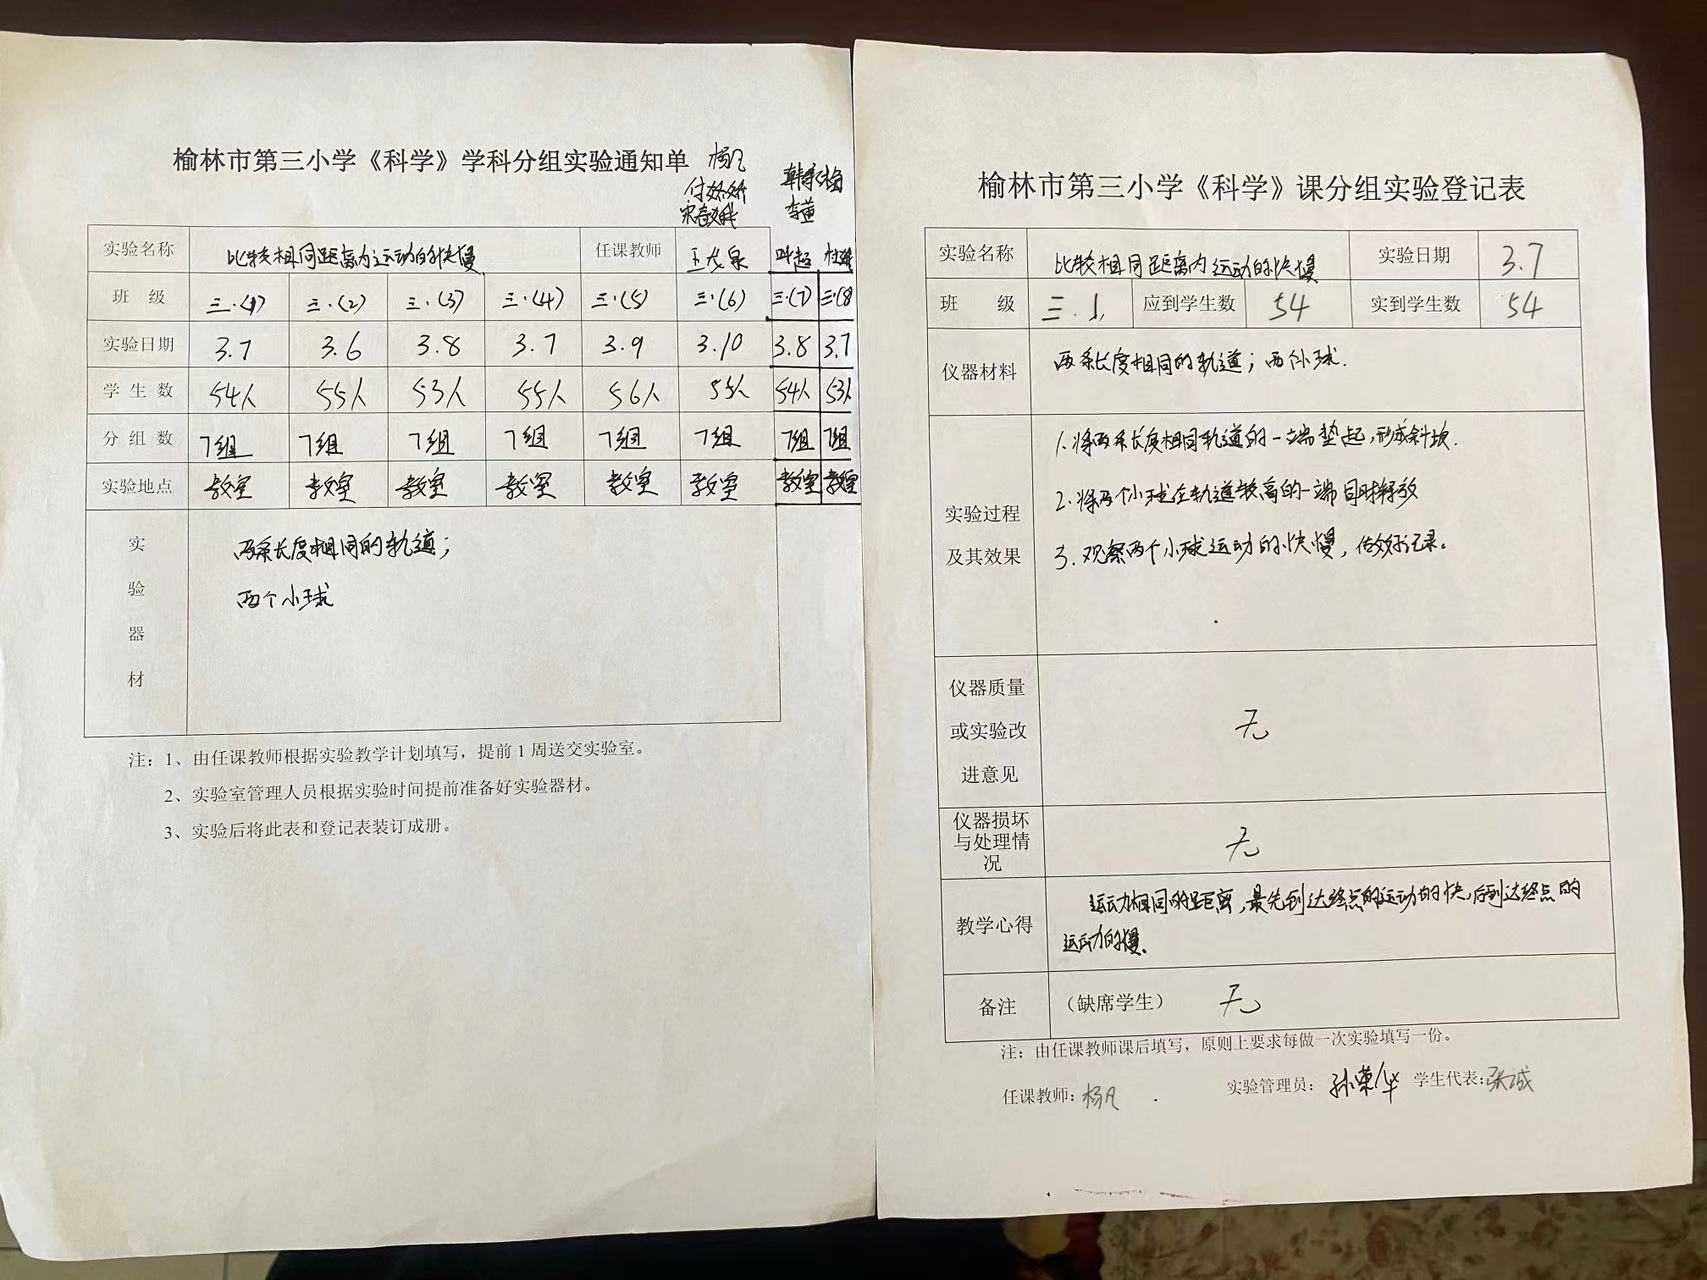 榆林市第三小学《科学》学科分组实验通知单 杨凡
实验名称 比较相同距离内运动的快慢 任课教师
班 级 三.(1) 三.(2) 三.(3) 三.(4) 三.(5) 三.(6) 三.(7) 三.(8)
实验日期 3.7 3.6 3.8 3.7 3.9 3.10 3.8 3.7
学 生 数 54人 55人 53人 55人 56人 55人 54人 53人
分 组 数 7组 7组 7组 7组 7组 7组 7组 7组
实验地点 教室 教室 教室 教室 教室 教室 教室 教室
实
验
器
材
两条长度相同的轨道；
两个小球
注：1、由任课教师根据实验教学计划填写，提前1周送交实验室。
2、实验室管理人员根据实验时间提前准备好实验器材。
3、实验后将此表和登记表装订成册。
榆林市第三小学《科学》课分组实验登记表
实验名称 比较相同距离内运动的快慢 实验日期 3.7
班 级 三.1. 应到学生数 54 实到学生数 54
仪器材料 两条长度相同的轨道；两个小球.
实验过程
及其效果
1.将两条长度相同轨道的一端垫起,形成斜坡.
2.将两个小球在轨道较高的一端同时释放
3.观察两个小球运动的快慢，做好记录。
仪器质量
或实验改
进意见
无
仪器损坏
与处理情
况
无
教学心得
运动相同的距离,最先到达终点的运动的快,后到达终点的
运动的慢.
备注 （缺席学生） 无
注：由任课教师课后填写，原则上要求每做一次实验填写一份。
任课教师：杨凡 实验管理员：孙荣华 学生代表：张诚